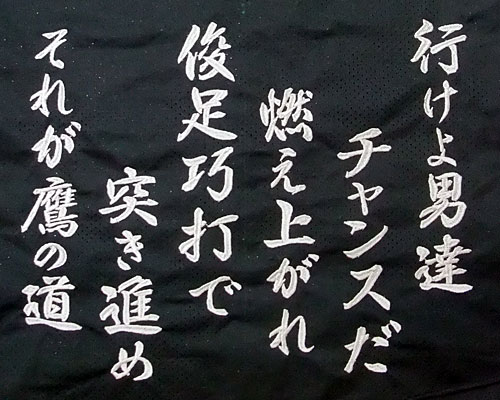 行けよ男達
チャンスだ
燃え上がれ
俊足巧打で
突き進め
それが鷹の道